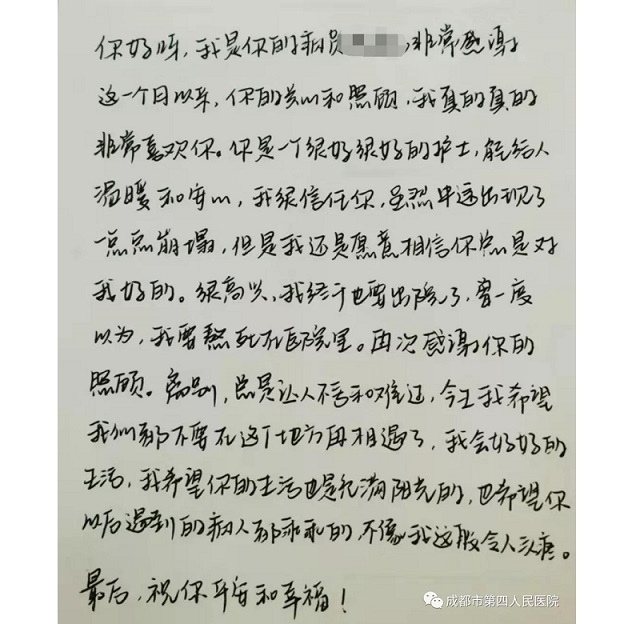 你好呀，我是你的病员，非常感谢
这一个月以来，你的关心和照顾，我真的真的
非常喜欢你。你是一个很好很好的护士，能给人
温暖和安心，我很信任你，虽然中途出现了
一点点崩塌，但是我还是愿意相信你总是对
我好的。很高兴，我终于也要出院了，曾一度
以为，我要熬死在医院里。再次感谢你的
照顾。离别，总是让人不舍和难过，今生我希望
我们都不要在这个地方再相遇了，我会好好的
生活，我希望你的生活也是充满阳光的，也希望你
以后遇到的病人都乖乖的不像我这般令人头疼。
最后，祝你平安和幸福！
成都市第四人民医院